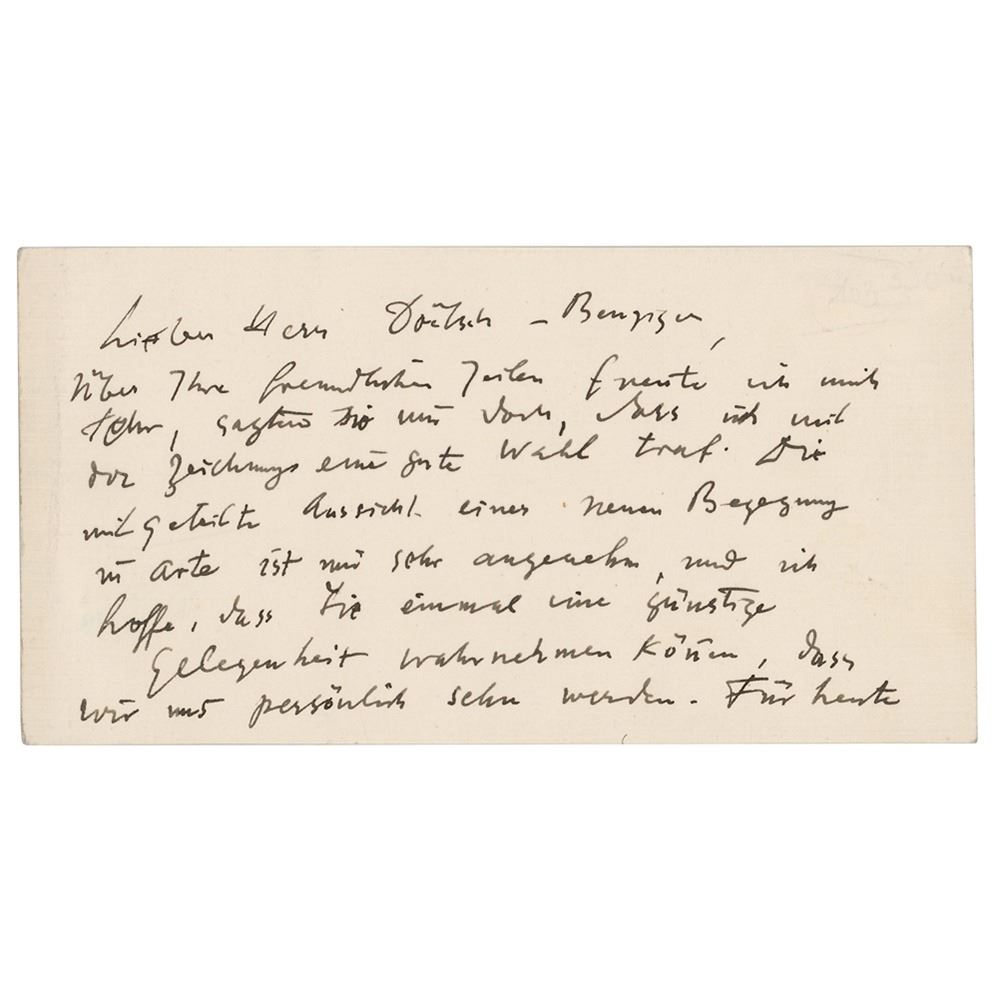 Lieber Herr Doetsch - Benziger,
Über Ihre freundlichen Zeilen freute ich mich
sehr, sagten Sie mir doch, dass ich mit
der Zeichnung eine gute Wahl traf. Die
mitgeteilte Aussicht einer neuen Begegnung
in arte ist mir sehr angenehm, und ich
hoffe, dass Sie einmal eine günstige
Gelegenheit wahrnehmen können, dass
wir uns persönlich sehn werden. Für heute